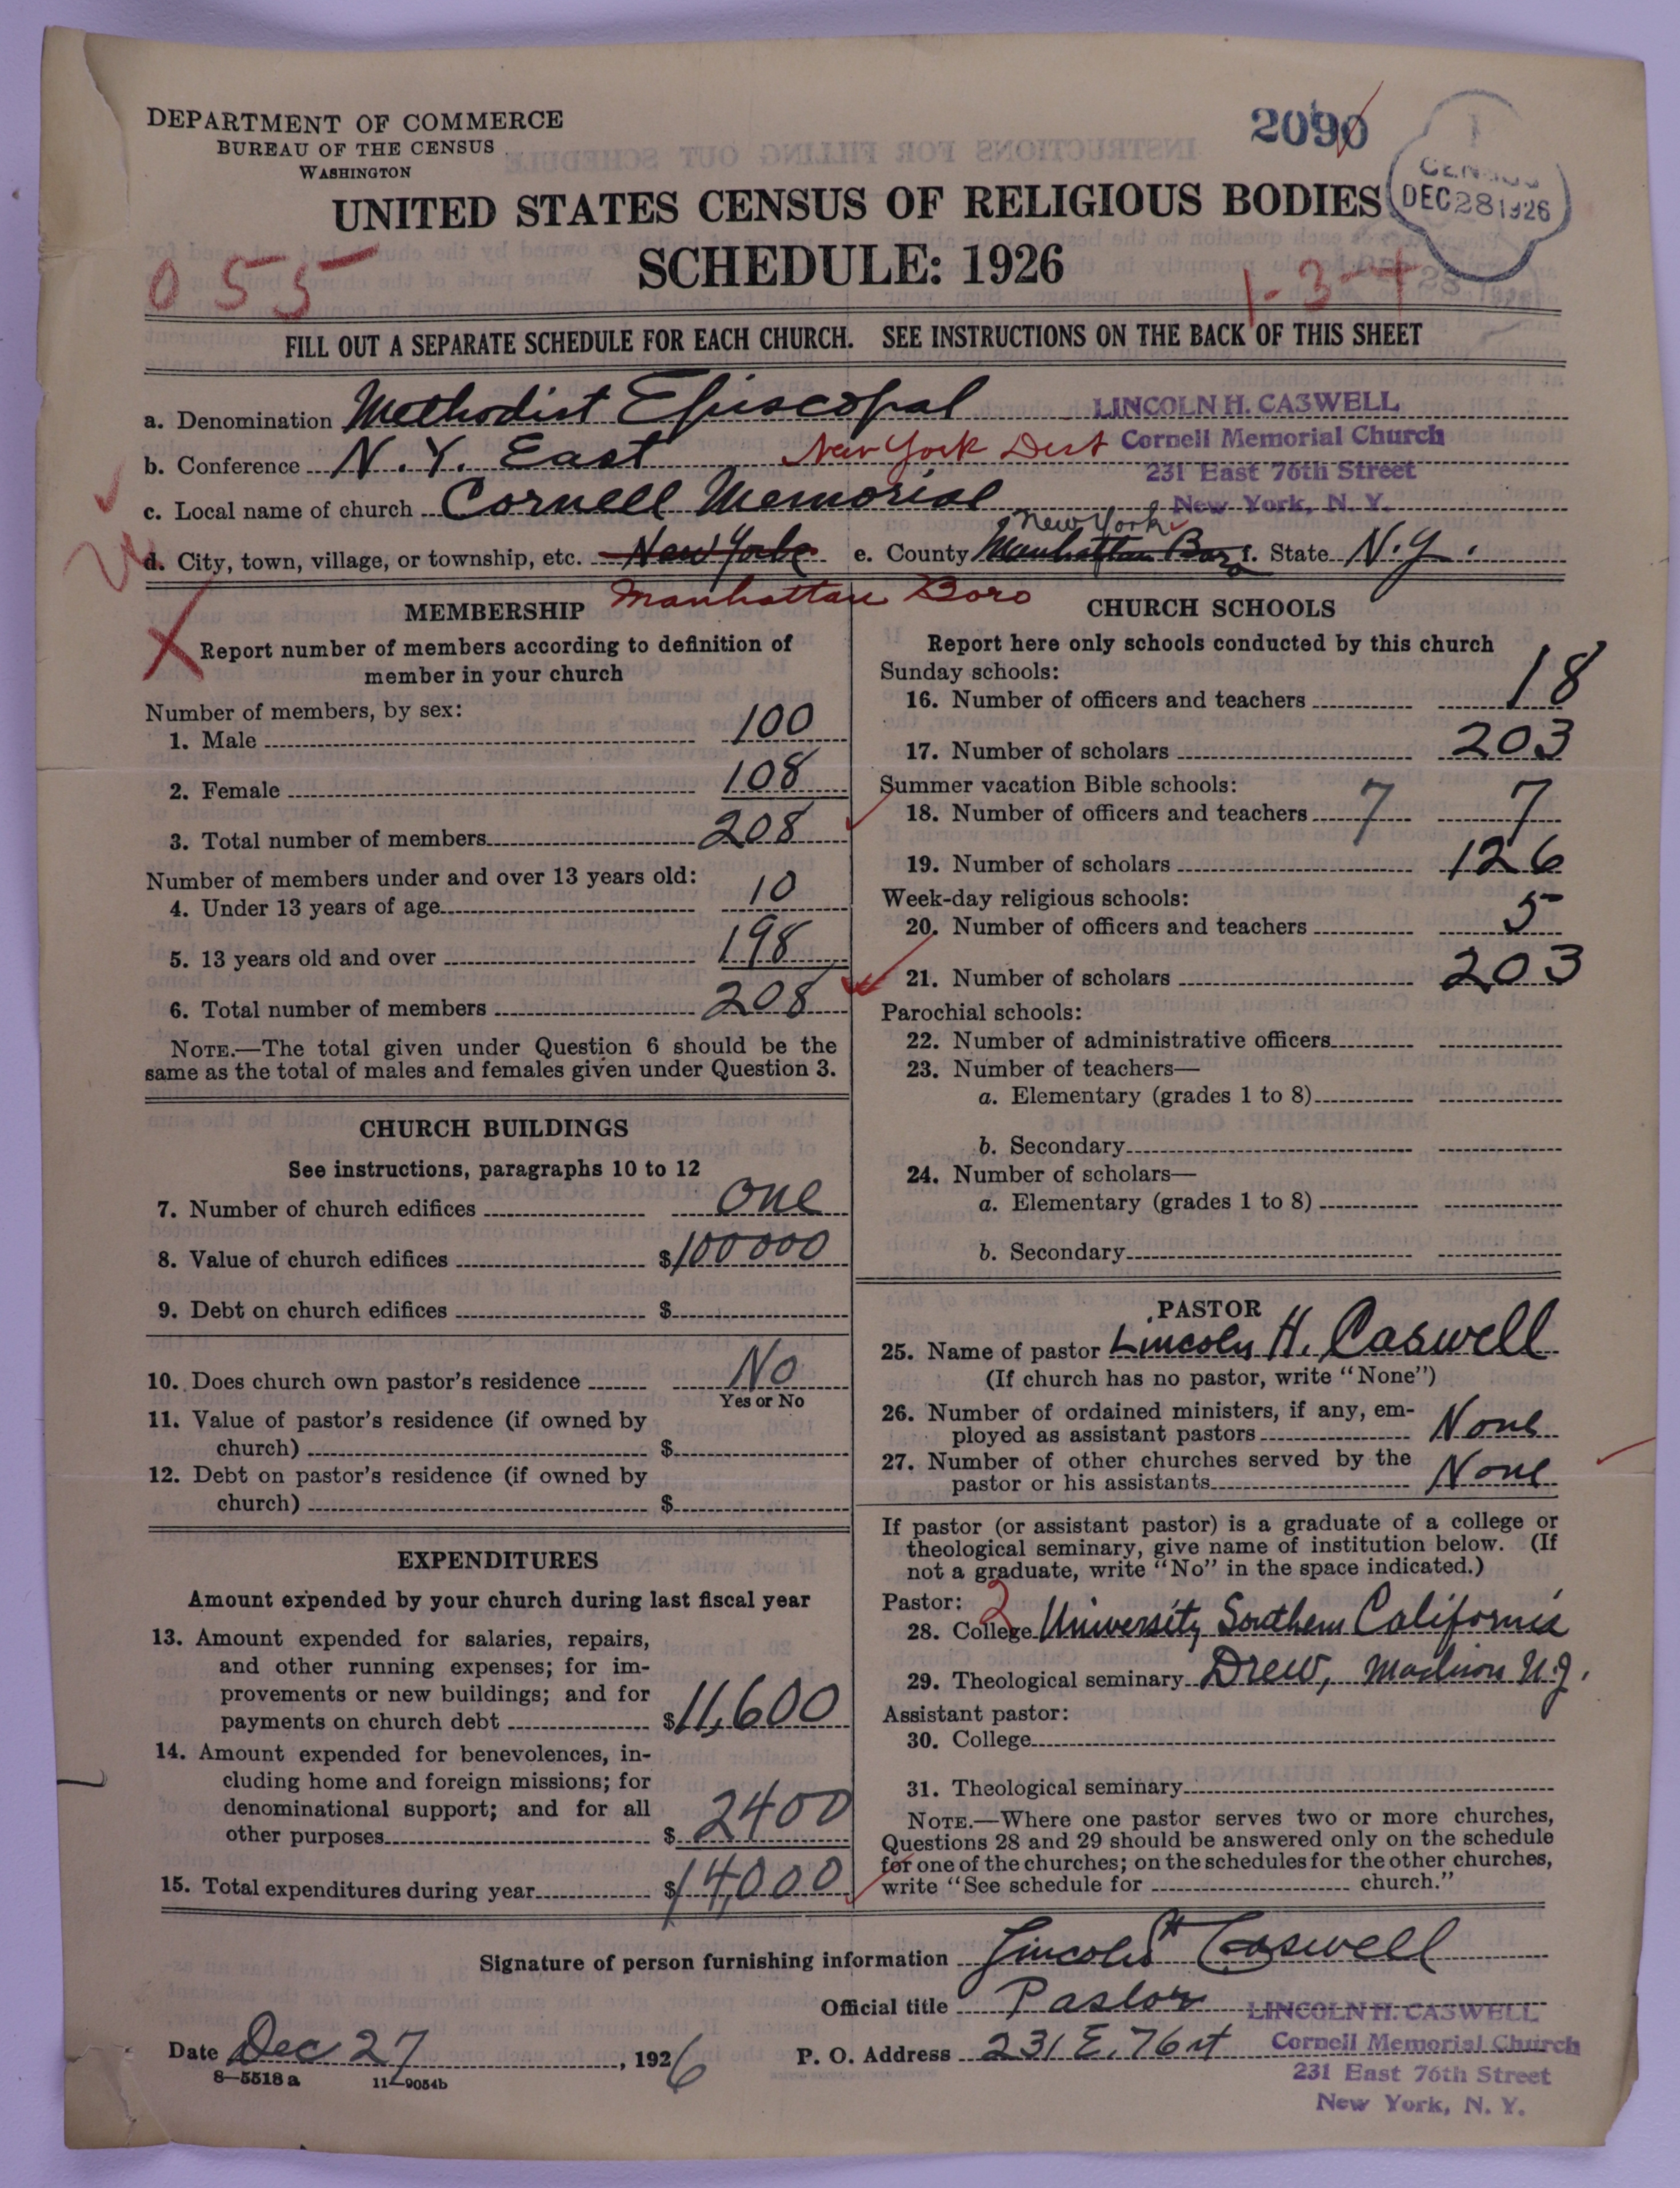 DEPARTMENT OF COMMERCE
BUREAU OF THE CENSUS
WASHINGTON
2090
CENSUS
DEC 28 1926
UNITED STATES CENSUS OF RELIGIOUS BODIES
SCHEDULE: 1926
055
1-3-4
FILL OUT A SEPARATE SCHEDULE FOR EACH CHURCH. SEE INSTRUCTIONS ON THE BACK OF THIS SHEET
a. Denomination Methodist Episcopal
LINCOLN H. CASWELL
Cornell Memorial Church
231 East 76th Street
New York, N. Y.
b. Conference N. Y. East New York Dist
c. Local name of church Cornell Memorial
d. City, town, village, or township, etc. New York Manhattan Boro
e. County Manhattan Boro New York f. State N.Y.
MEMBERSHIP
Report number of members according to definition of
member in your church
Number of members, by sex:
1. Male 100
2. Female 108
3. Total number of members 208
Number of members under and over 13 years old:
4. Under 13 years of age 10
5. 13 years old and over 198
6. Total number of members 208
NOTE.—The total given under Question 6 should be the
same as the total of males and females given under Question 3.
CHURCH BUILDINGS
See instructions, paragraphs 10 to 12
7. Number of church edifices One
8. Value of church edifices $100000
9. Debt on church edifices $
10. Does church own pastor's residence No
Yes or No
11. Value of pastor's residence (if owned by
church) $
12. Debt on pastor's residence (if owned by
church) $
EXPENDITURES
Amount expended by your church during last fiscal year
13. Amount expended for salaries, repairs,
and other running expenses; for im-
provements or new buildings; and for
payments on church debt $11,600
14. Amount expended for benevolences, in-
cluding home and foreign missions; for
denominational support; and for all
other purposes $2400
15. Total expenditures during year $14,000
CHURCH SCHOOLS
Report here only schools conducted by this church
Sunday schools:
16. Number of officers and teachers 18
17. Number of scholars 203
Summer vacation Bible schools:
18. Number of officers and teachers 7 7
19. Number of scholars 126
Week-day religious schools:
20. Number of officers and teachers 5
21. Number of scholars 203
Parochial schools:
22. Number of administrative officers
23. Number of teachers—
a. Elementary (grades 1 to 8)
b. Secondary
24. Number of scholars—
a. Elementary (grades 1 to 8)
b. Secondary
PASTOR
25. Name of pastor Lincoln H. Caswell
(If church has no pastor, write "None")
26. Number of ordained ministers, if any, em-
ployed as assistant pastors None
27. Number of other churches served by the
pastor or his assistants None
If pastor (or assistant pastor) is a graduate of a college or
theological seminary, give name of institution below. (If
not a graduate, write "No" in the space indicated.)
Pastor: 2
28. College University Southern California
29. Theological seminary Drew, Madison N.J.
Assistant pastor:
30. College
31. Theological seminary
NOTE.—Where one pastor serves two or more churches,
Questions 28 and 29 should be answered only on the schedule
for one of the churches; on the schedules for the other churches,
write "See schedule for church."
Signature of person furnishing information Lincoln H Caswell
Official title Pastor
LINCOLN H. CASWELL
Cornell Memorial Church
231 East 76th Street
New York, N. Y.
Date Dec 27, 1926
P. O. Address 231 E. 76 st
8—5518a 11—9054b